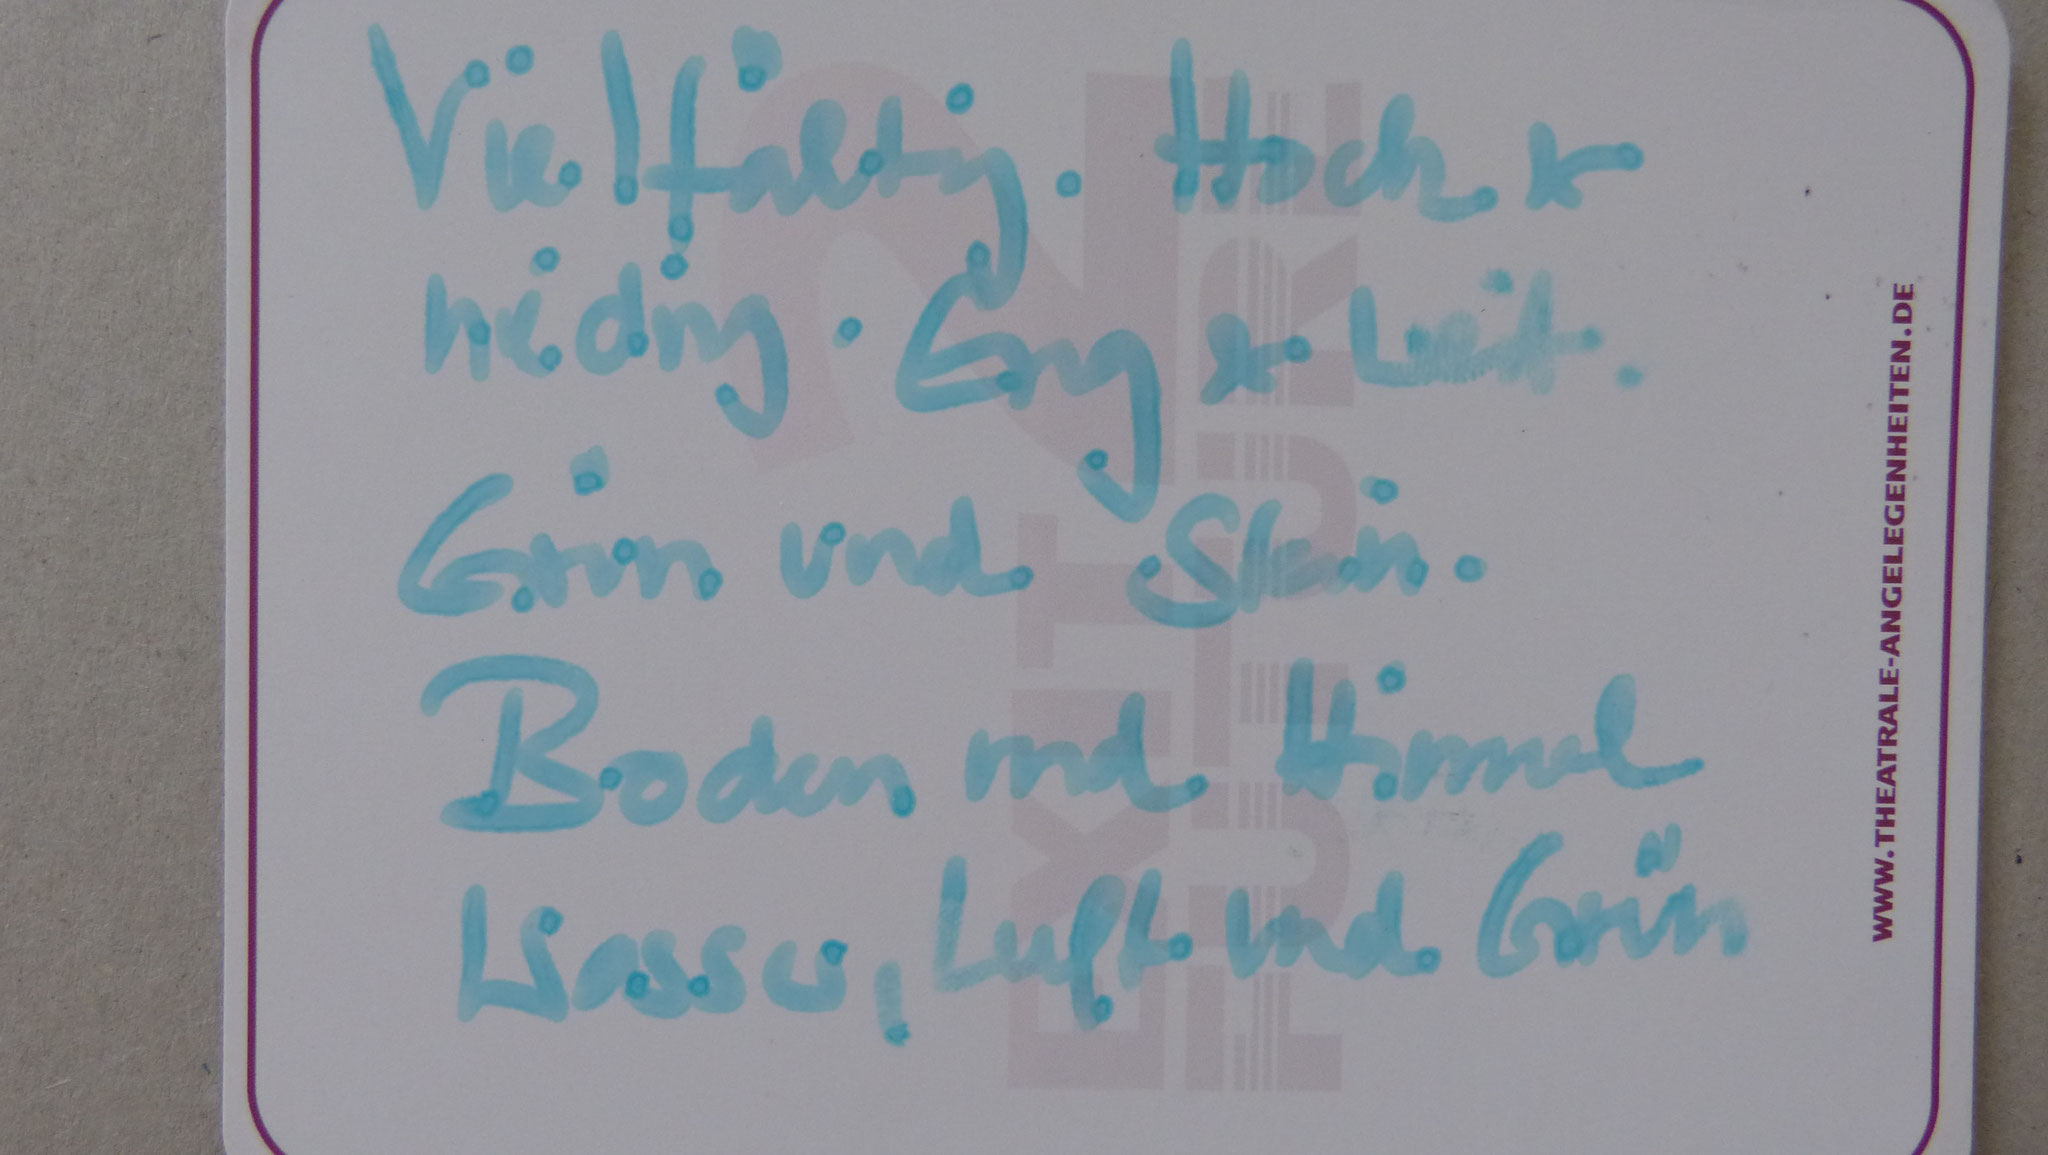 Vielfältig. Hoch &
niedrig. Eng & weit.
Grün und Stein.
Boden und Himmel
Wasser, Luft und Grün
WWW.THEATRALE-ANGLEGENHEITEN.DE